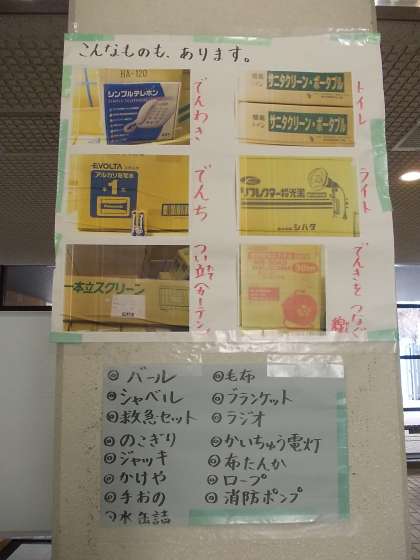 こんなものも、あります。
HA-120
シンプルテレホン
SIMPLE TELEPHONE
でんわき
サニタクリーン・ポータブル
サニタクリーン・ポータブル
トイレ
EVOLTA
アルカリ乾電池
単1
Panasonic
でんち
リフレクター投光器
株式会社 シハタ
ライト
一本立スクリーン
つい立(カーテン)
30m
でんきをつなぐ線
◎バール
◎シャベル
◎救急セット
◎のこぎり
◎ジャッキ
◎かけや
◎手おの
◎水 缶詰
◎毛布
◎ブランケット
◎ラジオ
◎かいちゅう電灯
◎布たんか
◎ロープ
◎消防ポンプ